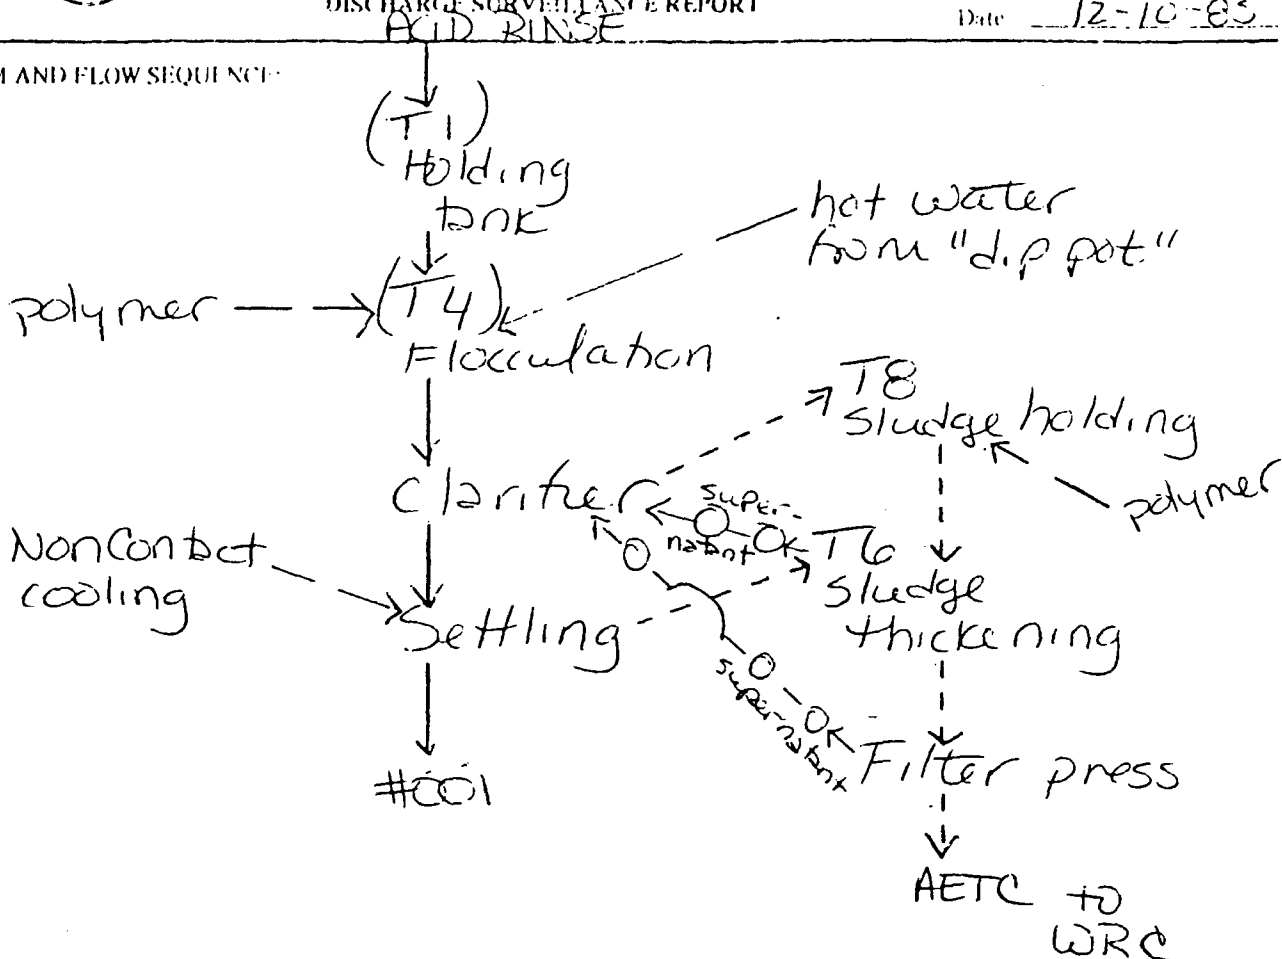 DISCHARGE SURVEILLANCE REPORT
Date 12-10-85
ACID RINSE
AND FLOW SEQUENCE
(T1)
Holding
tank
hot water
from "dip pot"
polymer
(T4)
Flocculation
T8
Sludge holding
polymer
Clarifier
super-
natant
T6
Sludge
thickening
NonContact
cooling
Settling
supernatant
Filter press
#001
AETC to
WRC